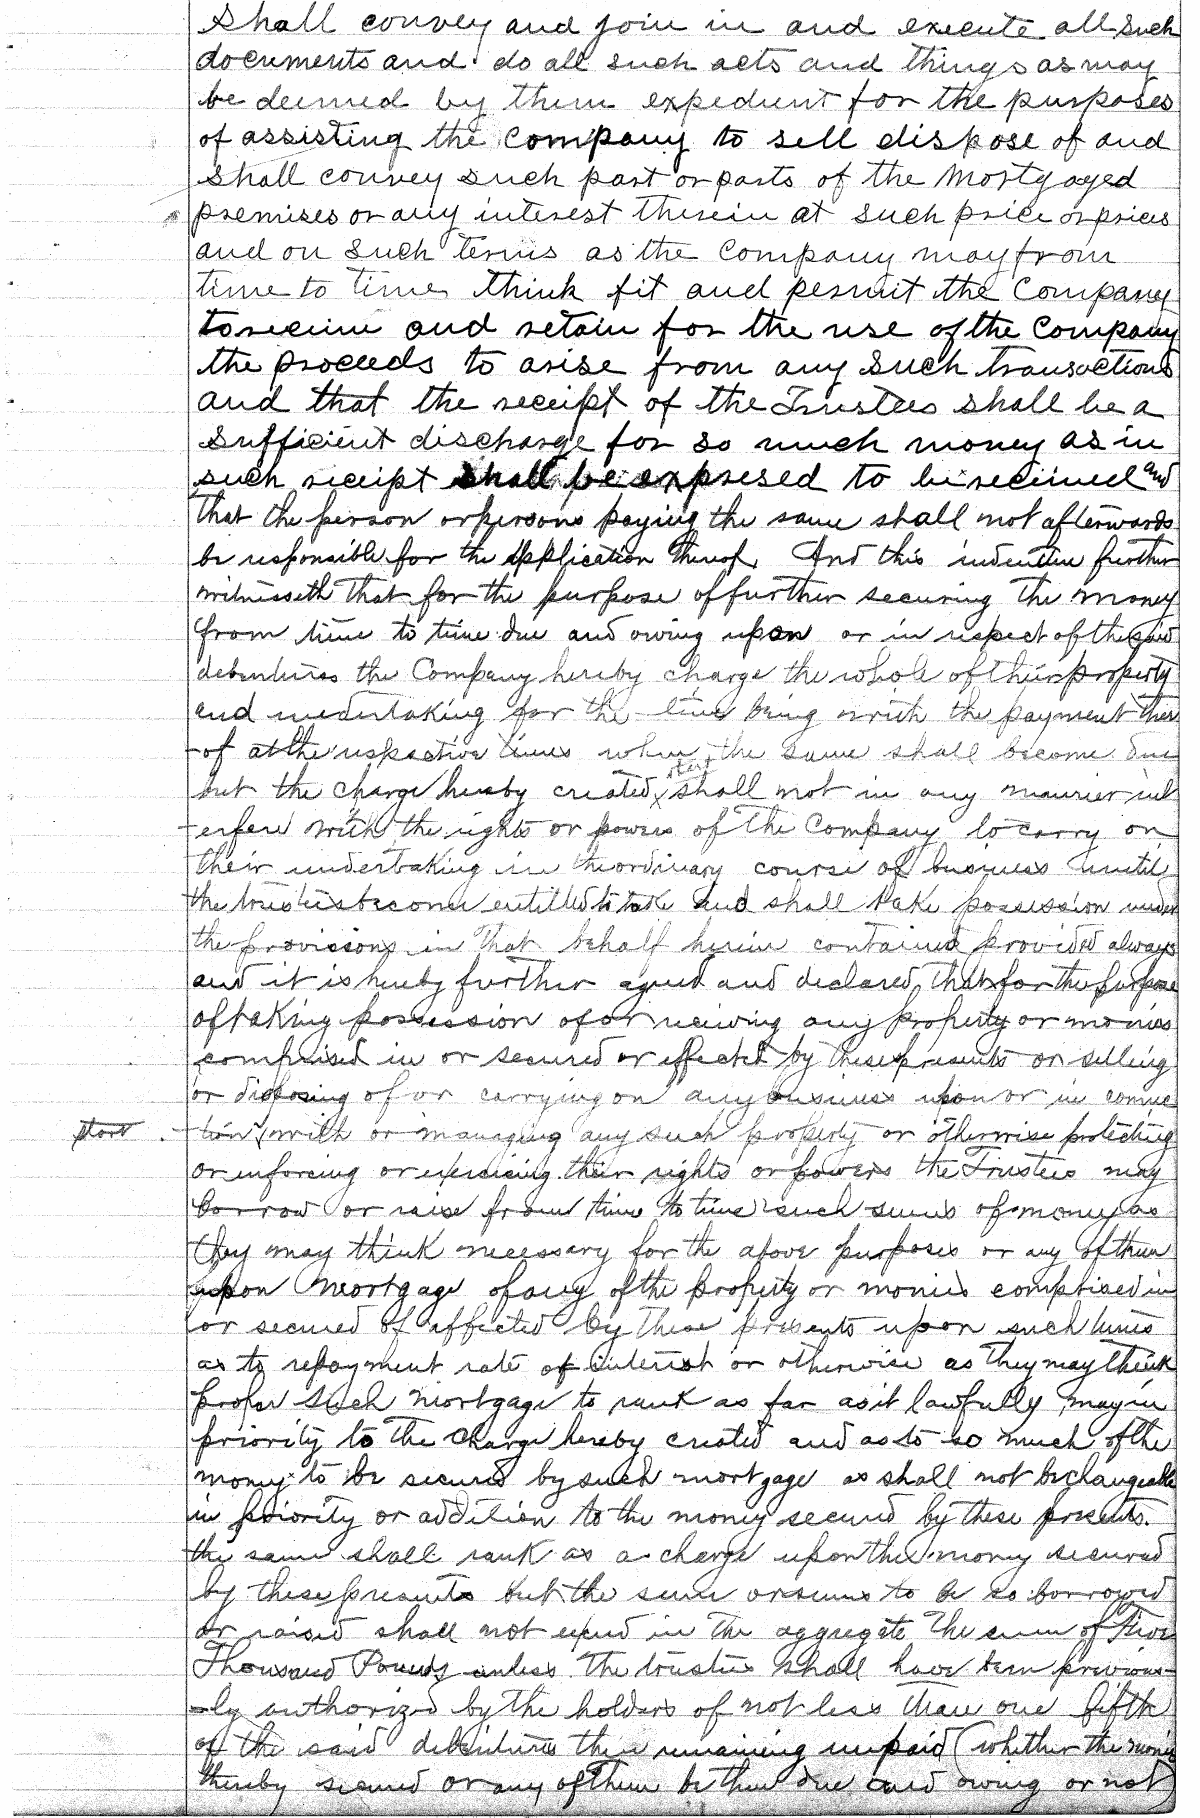 shall convey and join in and execute all such
documents and do all such acts and things as may
be deemed by them expedient for the purposes
of assisting the Company to sell dispose of and
shall convey such part or parts of the Mortgaged
premises or any interest therein at such price or prices
and on such terms as the Company may from
time to time think fit and permit the Company
to receive and retain for the use of the Company
the proceeds to arise from any such transactions
and that the receipt of the Trustees shall be a
sufficient discharge for so much money as in
such receipt shall be expressed to be received and
that the person or persons paying the same shall not afterwards
be responsible for the application thereof. And this indenture further
witnesseth that for the purpose of further securing the money
from time to time due and owing upon or in respect of the said
debentures the Company hereby charge the whole of their property
and undertaking for the time being with the payment there
-of at the respective times when the same shall become due
but the charge hereby created shall not in any manner int
-erfere with the rights or powers of the Company to carry on
their undertaking in the ordinary course of business until
the trustees become entitled to take and shall take possession under
the provisions in that behalf herein contained provided always
and it is hereby further agreed and declared that for the purpose
of taking possession of or receiving any property or monies
comprised in or secured or effected by these presents or selling
or disposing of or carrying on any business upon or in connec
start -tion with or managing any such property or otherwise protecting
or enforcing or exercising their rights or powers the Trustees may
borrow or raise from time to time such sums of money as
they may think necessary for the above purposes or any of them
upon mortgage of any of the property or monies comprised in
or secured of affected by these presents upon such times
as to repayment rate of interest or otherwise as they may think
proper such mortgage to rank as far as it lawfully may in
priority to the charge hereby created and as to so much of the
money to be secured by such mortgage as shall not be chargeable
in priority or addition to the money secured by these presents.
the same shall rank as a charge upon the money secured
by these presents but the sum or sums to be so borrowed
or raised shall not exceed in the aggregate the sum of Five
Thousand Pounds unless the trustees shall have been previous-
-ly authorized by the holders of not less than one fifth
of the said debentures then remaining unpaid (whether the monies
thereby secured or any of them be then due and owing or not)